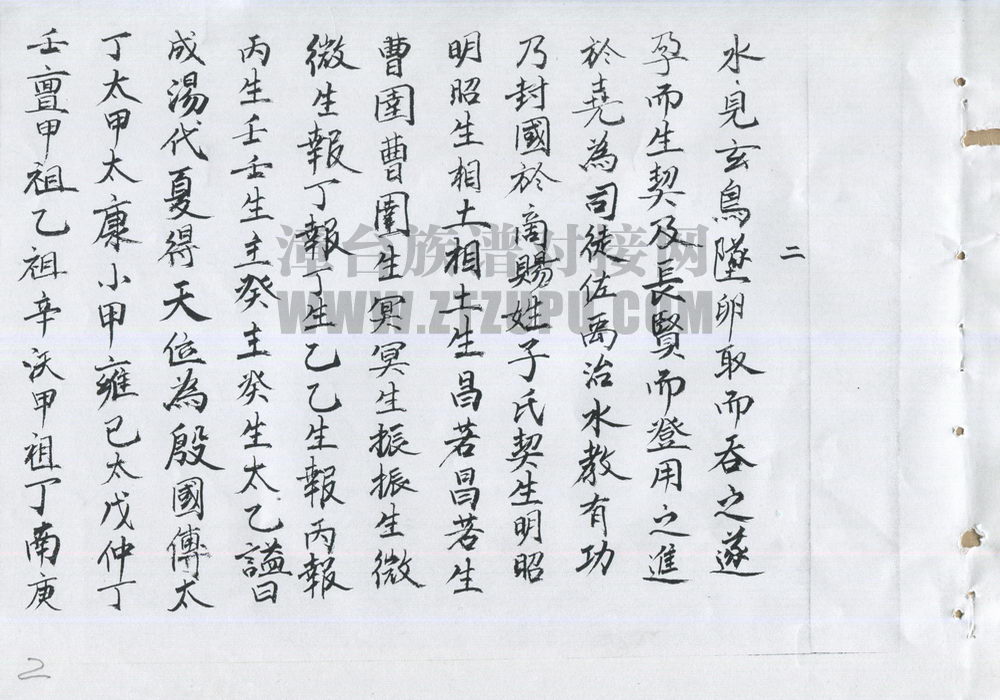 二
水見玄鳥墜卵取而吞之遂
孕而生契及長賢而登用之進
於堯為司徒佐禹治水教有功
乃封國於商賜姓子氏契生明昭
明昭生相土相土生昌若昌若生
曹圉曹圉生冥冥生振振生微
微生報丁報丁生乙乙生報丙報
丙生壬壬生主癸主癸生太乙謚曰
成湯代夏得天位為殷國傳太
丁太甲太康小甲雍已太戊仲丁
壬亶甲祖乙祖辛沃甲祖丁南庚
2
漳台族谱对接网
WWW.ZTZUPU.COM